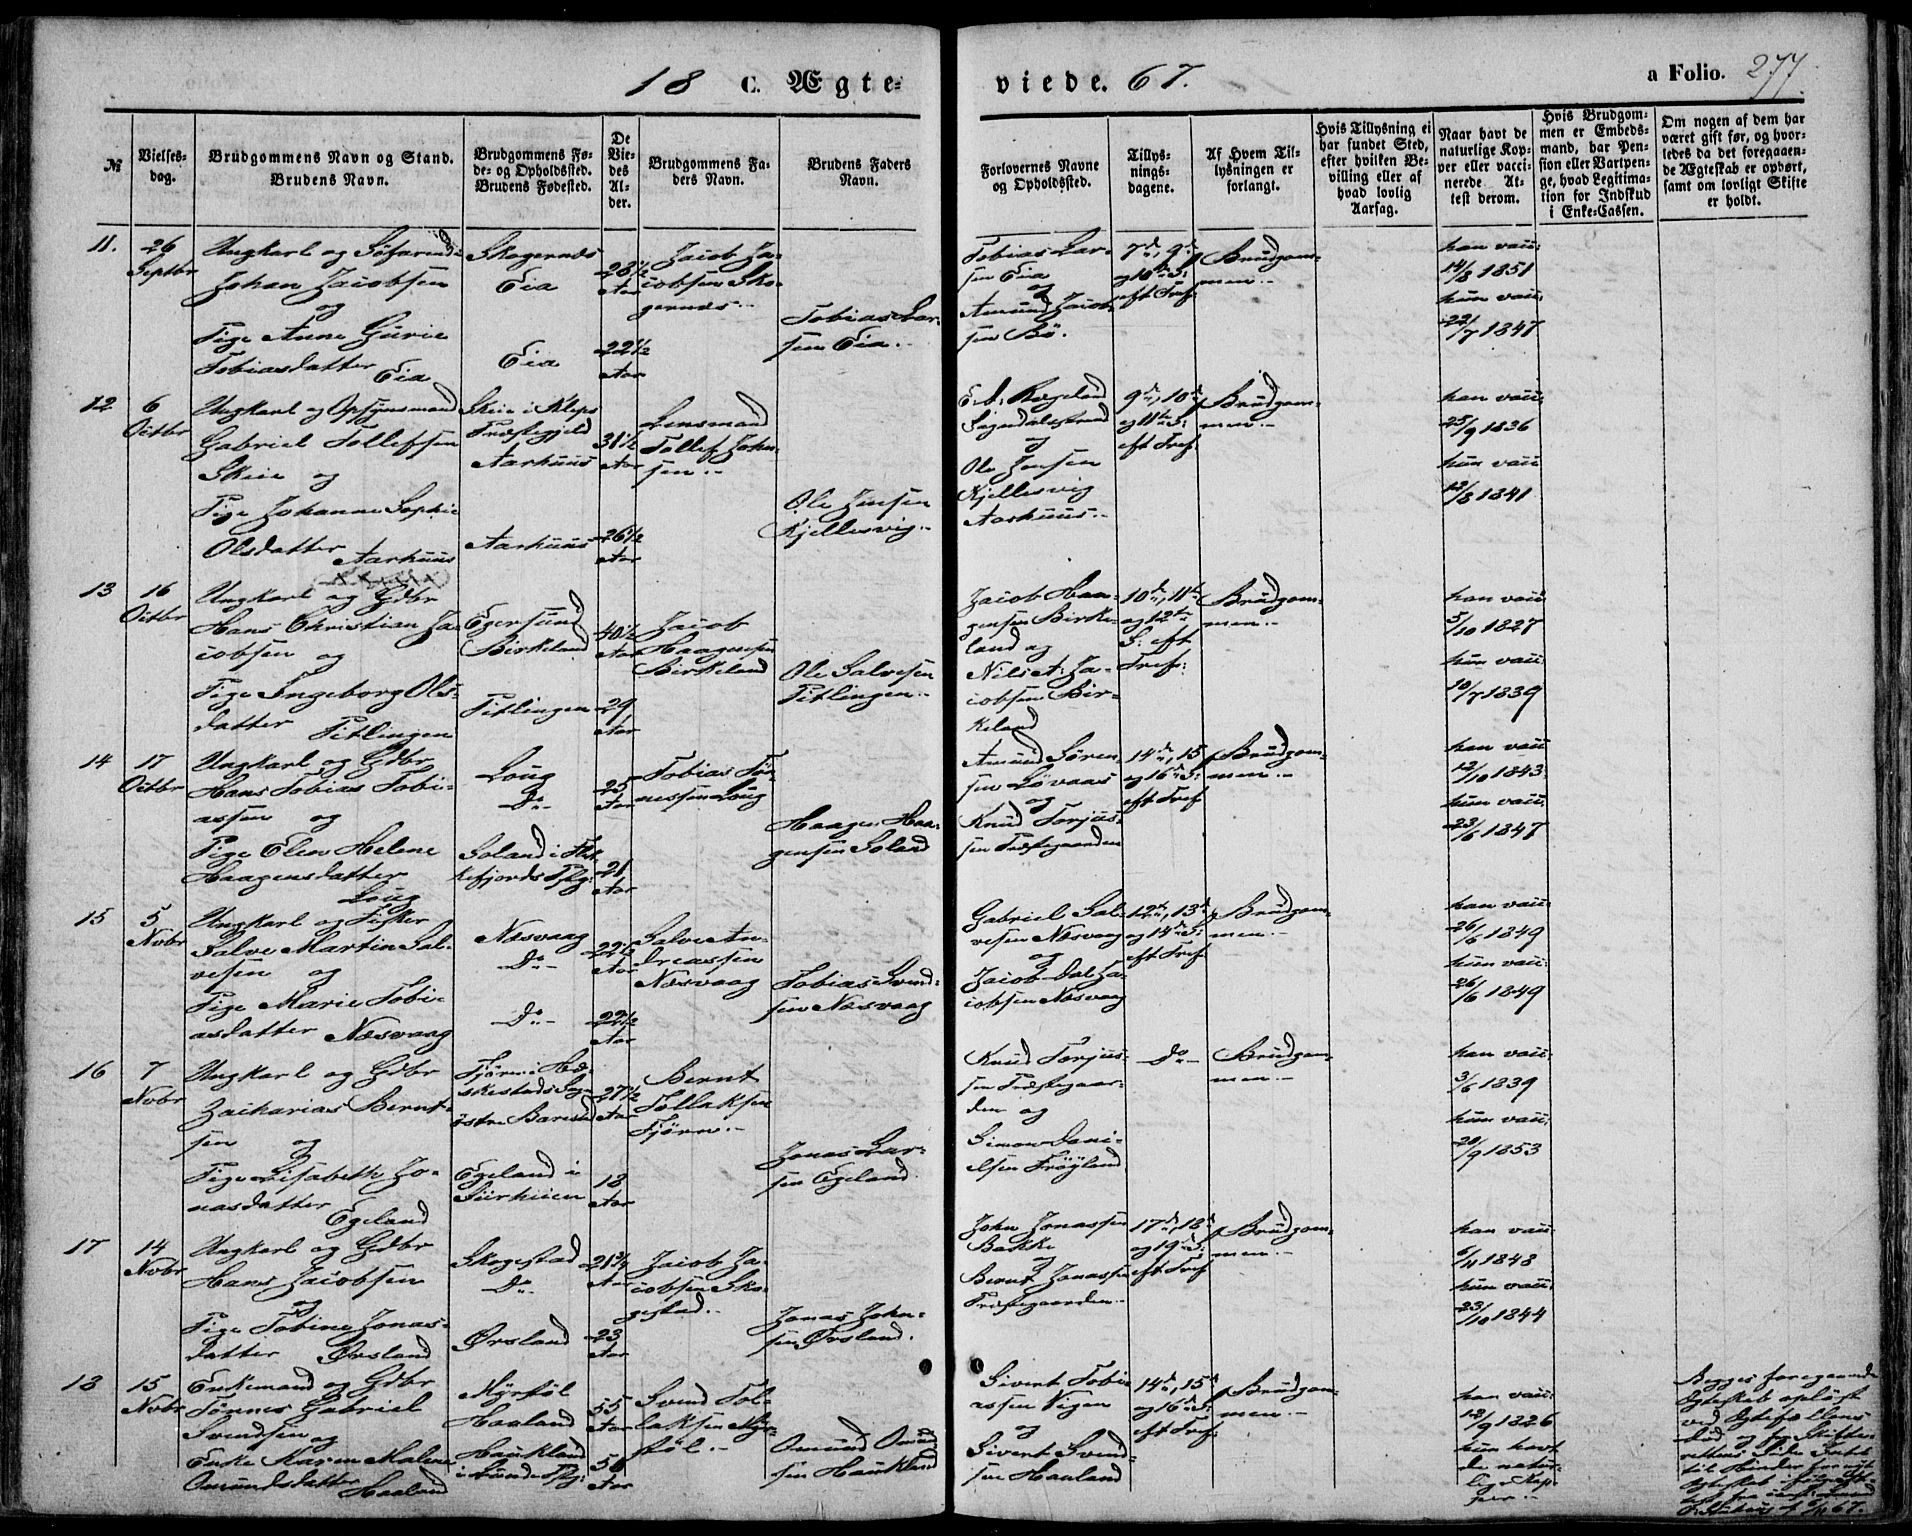 18 C. Ægte-
viede. 67.
a Folio. 277.
№
Vielses-
dag.
Brudgommens Navn og Stand.
Brudens Navn.
Brudgommens Fø-
de- og Opholdssted.
Brudens Fødested.
De
Vie-
des
Al-
der.
Brudgommens Fa-
ders Navn.
Brudens Faders
Navn.
Forlovernes Navne
og Opholdssted.
Tillys-
nings-
dagene.
Af Hvem Til-
lysningen er
forlangt.
Hvis Tillysning ei
har fundet Sted,
efter hvilken Be-
villing eller af
hvad lovlig
Aarsag.
Naar havt de
naturlige Kop-
per eller vacci-
nerede. At-
test derom.
Hvis Brudgom-
men er Embeds-
mand, har Pen-
sion eller Vartpen-
ge, hvad Legitima-
tion for Indskud
i Enke-Cassen.
Om nogen af dem har
været gift før, og hvor-
ledes da det foregaaen-
de Ægteskab er ophørt,
samt om lovligt Skifte
er holdt.
11.
26
Septbr
Ungkarl og Søfarende
Johan Jacobsen
og
Pige Anne Gurie
Tobiasdatter Eia
Skogernæs
Eia
Eia
28½
Aar
22½
Aar
Jacob Ja-
cobsen Sko-
gernæs.
Tobias Lar-
sen Eia.
Tobias Lar-
sen Eia
og
Amund Jacob-
sen Bö.
7de, 9de
og 10de S:
eft Tref:
Brudgom-
men.
han vacc:
14/8 1851
hun vacc:
22/7 1847
12
6
Octbr
Ungkarl og Opsynsmand
Gabriel Tollefsen
Skeie og
Pige Johanne Sophie
Olsdatter Aarhuus
Skeie i Kleps
Præstegjeld
Aarhuus
Aarhuus
31½
Aar
26½
Aar
Lensmand
Tollef John-
sen
Ole Jensen
Kjellesvig
E. b. Rægeland
Sogndalsstrand
og
Ole Jensen
Kjellesvig
Aarhuus.
9de, 10de
og 11te S:
eft Tref:
Brudgom-
men.
han vacc:
25/9 1836
hun vacc
12/8 1841
13
16
Octbr
Ungkarl og Gdbr
Hans Christian Ja-
cobsen og
Pige Ingeborg Ols-
datter Pitlingen
Egersund
Birkeland
Pitlingen
40½
Aar
29
Aar
Jacob
Haagensen
Birkeland
Ole Salvesen
Pitlingen
Jacob Haa-
gensen Birke-
land og
Nils A: Ja-
cobsen Bir-
keland
10de, 11te
og 12te
S: eft
Tref:
Brudgom-
men.
han vacc
5/10 1827
hun vacc
10/7 1839
14
17
Octbr
Ungkarl og Gdbr
Hans Tobias Tobi-
assen og
Pige Elen Helene
Haagensdatter
Loug
Loug
Do
Soland i Flek-
kefjords Pstg:
25
Aar
21
Aar
Tobias Tøn-
nessen Loug
Haagen Haa-
gensen Soland
Amund Søren-
sen Løvaas
og
Knud Torjus-
sen Præstegaarden
14de, 15
og 16de S:
eft Tref
Brudgom-
men.
han vacc
12/10 1843
hun vacc:
23/6 1847
15
5
Novbr
Ungkarl og Fisker
Salve Martin Sal-
vesen og
Pige Marie Tobi-
asdatter Næsvaag
Næsvaag
Do
Do
22½
Aar
22½
Aar
Salve An-
dreassen
Næsvaag
Tobias Svend-
sen Næsvaag
Gabriel Sal-
vesen Næsvaag
og
Jacob Dal Ja-
cobsen Næsvaag
12te, 13de
og 14de S:
eft Tref:
Brudgom-
men.
han vacc:
26/6 1849
hun vacc:
26/6 1849
16
7
Novbr
Ungkarl og Gdbr
Zacharias Bernt-
sen og
Pige Lisabeth Jo-
nasdatter
Egeland
Fjørn i He-
skestads Sogn
østre Barstad
Egeland i
Siirhuien
27½
Aar
18
Aar
Bernt
Tollaksen
Fjørn.
Jonas Lar-
sen Egeland
Knud Torjus-
sen Præstegaar-
den og
Simon Dani-
elsen Frøyland
Do
Brudgom-
men.
han vacc:
3/6 1839
hun vacc:
20/9 1853
17
14
Novbr
Ungkarl og Gdbr
Hans Jacobsen
og
Pige Tobine Jonas-
datter Ørsland
Skogestad
Do
Ørsland
21¾
Aar
23
Aar
Jacob Ja-
cobsen Sko-
gestad.
Jonas John-
sen Ørsland.
John Jonassen
Bakke
og
Bernt Jonassen
Præstegaarden
17de, 18de
og 19de S:
eft Tref
Brudgom-
men.
han vacc:
6/11 1848
hun vacc:
23/10 1844
18
15
Novbr
Enkemand og Gdbr
Tønnes Gabriel
Svendsen og
Enke Karen Malene
Omundsdatter Haaland
Myrstøl
Haaland
Haukland
i Lunde Pstg:
55
Aar
50
Aar
Svend Tol-
laksen Myr-
støl.
Omund Omund
sen Haukland
Sivert Tobi-
assen Vigen
og
Sivert Svend-
sen Haaland
14de, 15de
og 16de S:
eft Tref:
Brudgom-
men.
han vacc:
12/9 1826
hun havt
de natur-
lige Kop-
per.
Begges foregaaende
Ægteskab opløst
ved Ægtefællens
Død og fra Skifte-
rettens Side Intet
til Hinder for nyt
Ægteskab ifølge